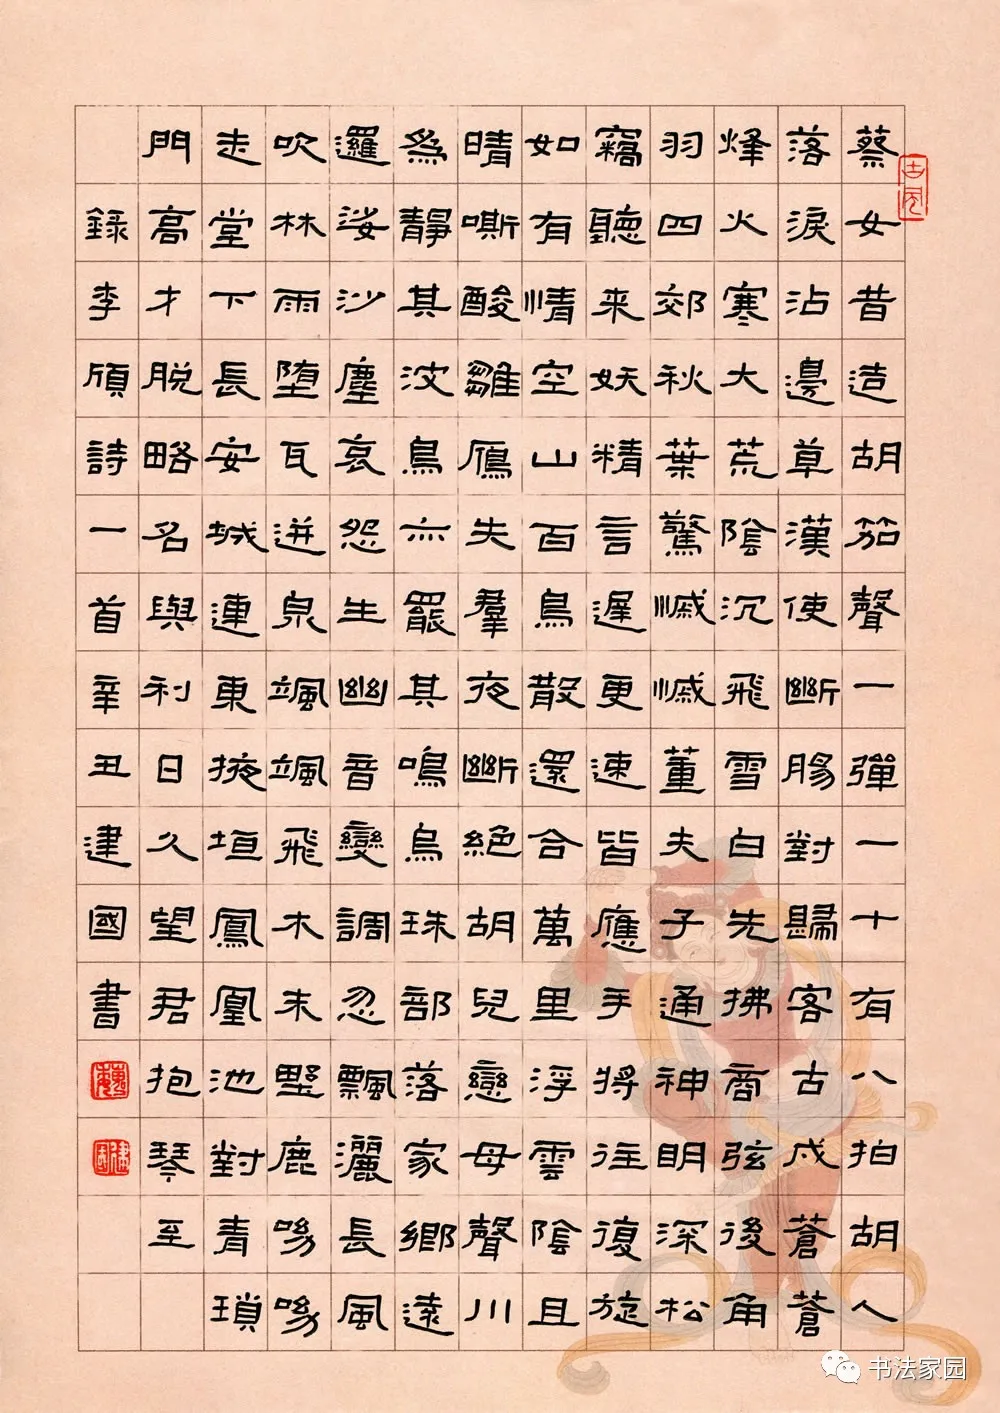 蔡女昔造胡笳聲一彈一十有八拍胡人
落淚沾邊草漢使斷腸對歸客古戍蒼蒼
烽火寒大荒陰沉飛雪白先拂商弦後角
羽四郊秋葉驚慽慽董夫子通神明深松
竊聽來妖精言遲更速皆應手將往復旋
如有情空山百鳥散還合萬里浮雲陰且
晴嘶酸雛鴈失羣夜斷絕胡兒戀母聲川
為靜其波鳥亦罷其鳴烏珠部落家鄉遠
邏娑沙塵哀怨生幽音變調忽飄灑長風
吹林雨堕瓦迸泉颯颯飛木末野鹿呦呦
走堂下長安城連東掖垣鳳凰池對青瑣
門高才脫略名與利日久望君抱琴至
錄李頎詩一首辛丑建國書
建國
书法家园